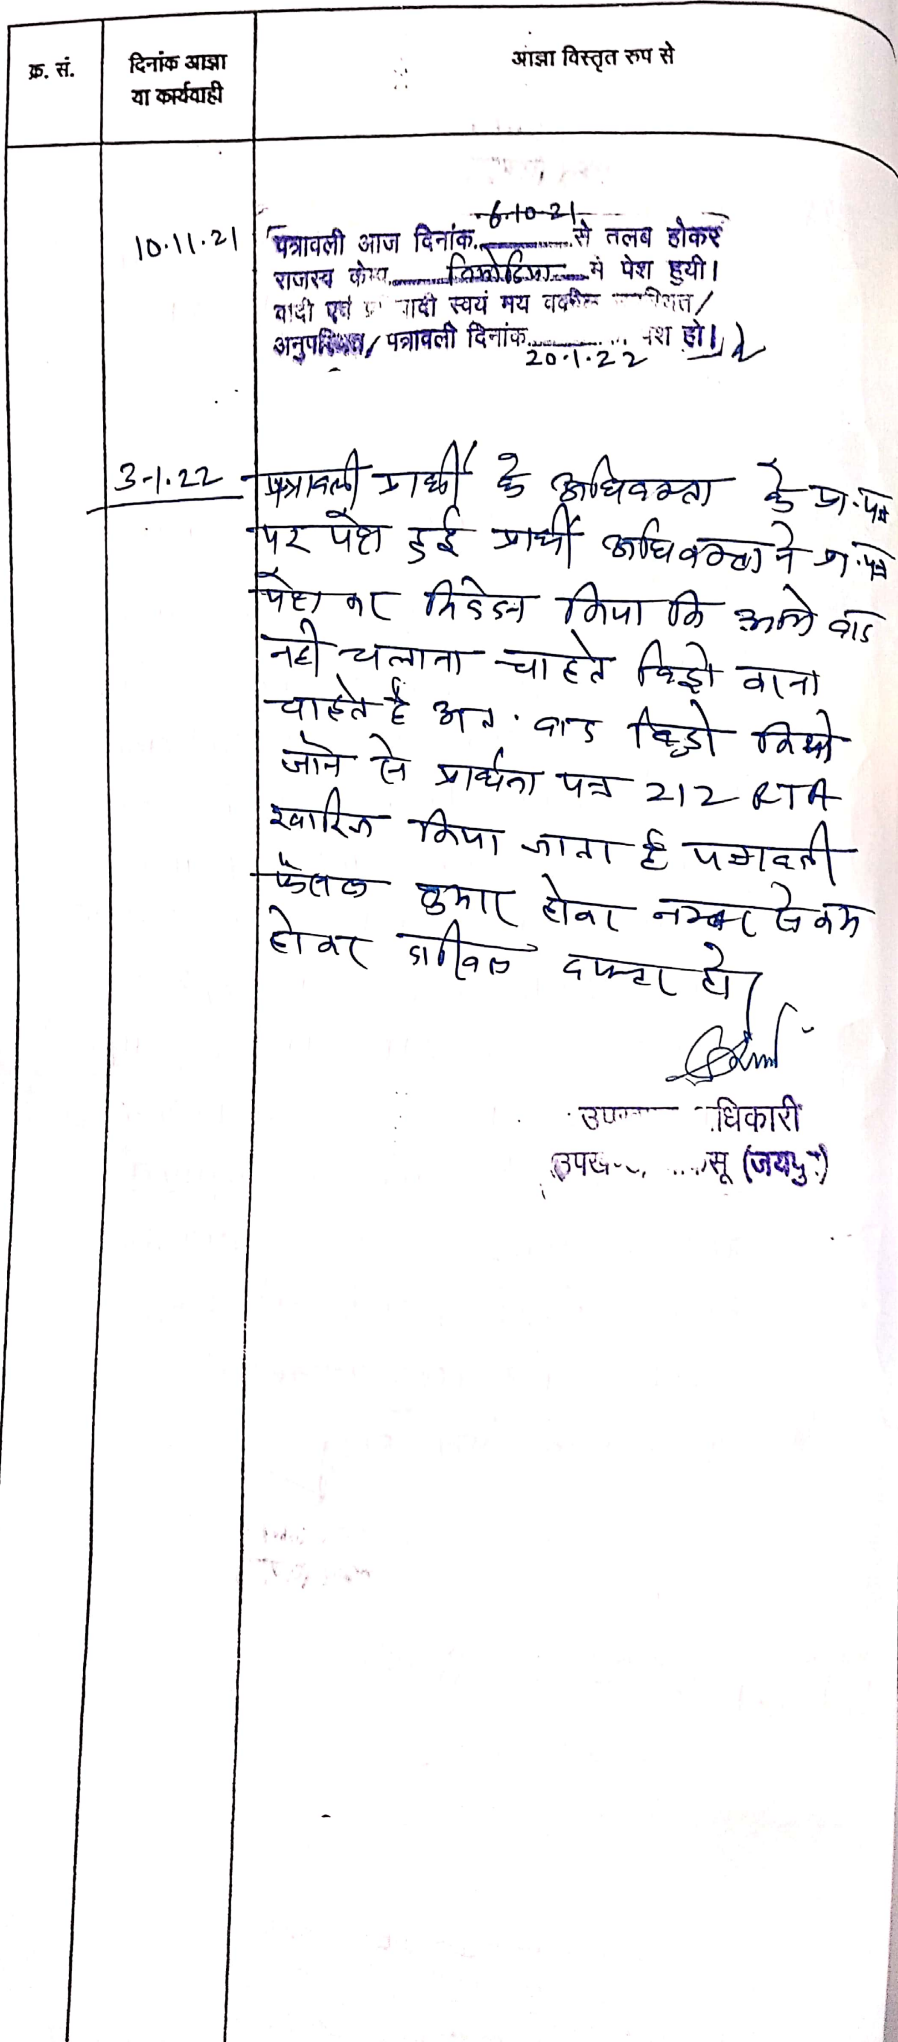 क्र. सं.
दिनांक आज्ञा
या कार्यवाही
आज्ञा विस्तृत रुप से
10.11.21
6.10.21
पत्रावली आज दिनांक..............से तलब होकर
राजस्व केम्प मे पेश हुयी।
वादी एवं वादी स्वयं मय वकील
अनुपस्थित/पत्रावली दिनांक.............. पेश हो।
20.1.22
3-1.22
पत्रावली प्रार्थी के अधिवक्ता के प्रा.पत्र
पर पेश हुई प्रार्थी अधिवक्ता ने प्रा.पत्र
पेश कर निवेदन किया कि वाद
नही चलाना चाहते विड्रो
चाहते है अत. वाद विड्रो किये
जाने से प्रार्थना पत्र 212 RTA
खारिज किया जाता है पत्रावली
फैसल शुमार होकर नम्बर से कम
होकर दाखिल दफ्तर हो।
धिकारी
सू (जयपुर)